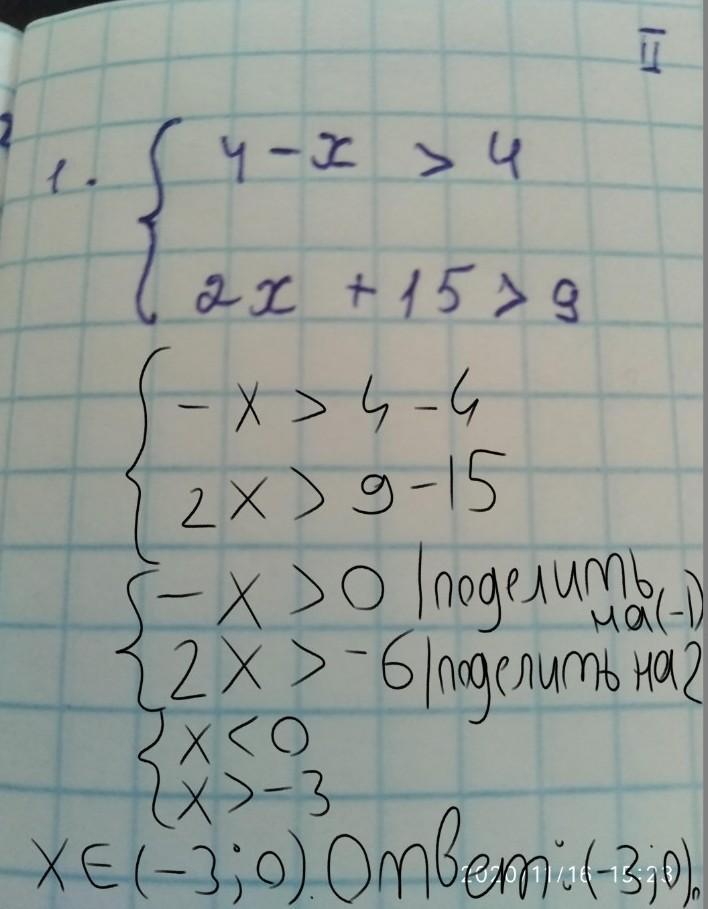 II
1. { 4 - x > 4
2x + 15 > 9
{ - x > 4 - 4
2x > 9 - 15
{ - x > 0 | поделить на (-1)
2x > -6 | поделить на 2
{ x < 0
x > -3
x ∈ (-3; 0). Ответ: (-3; 0).
2020/11/16 15:23